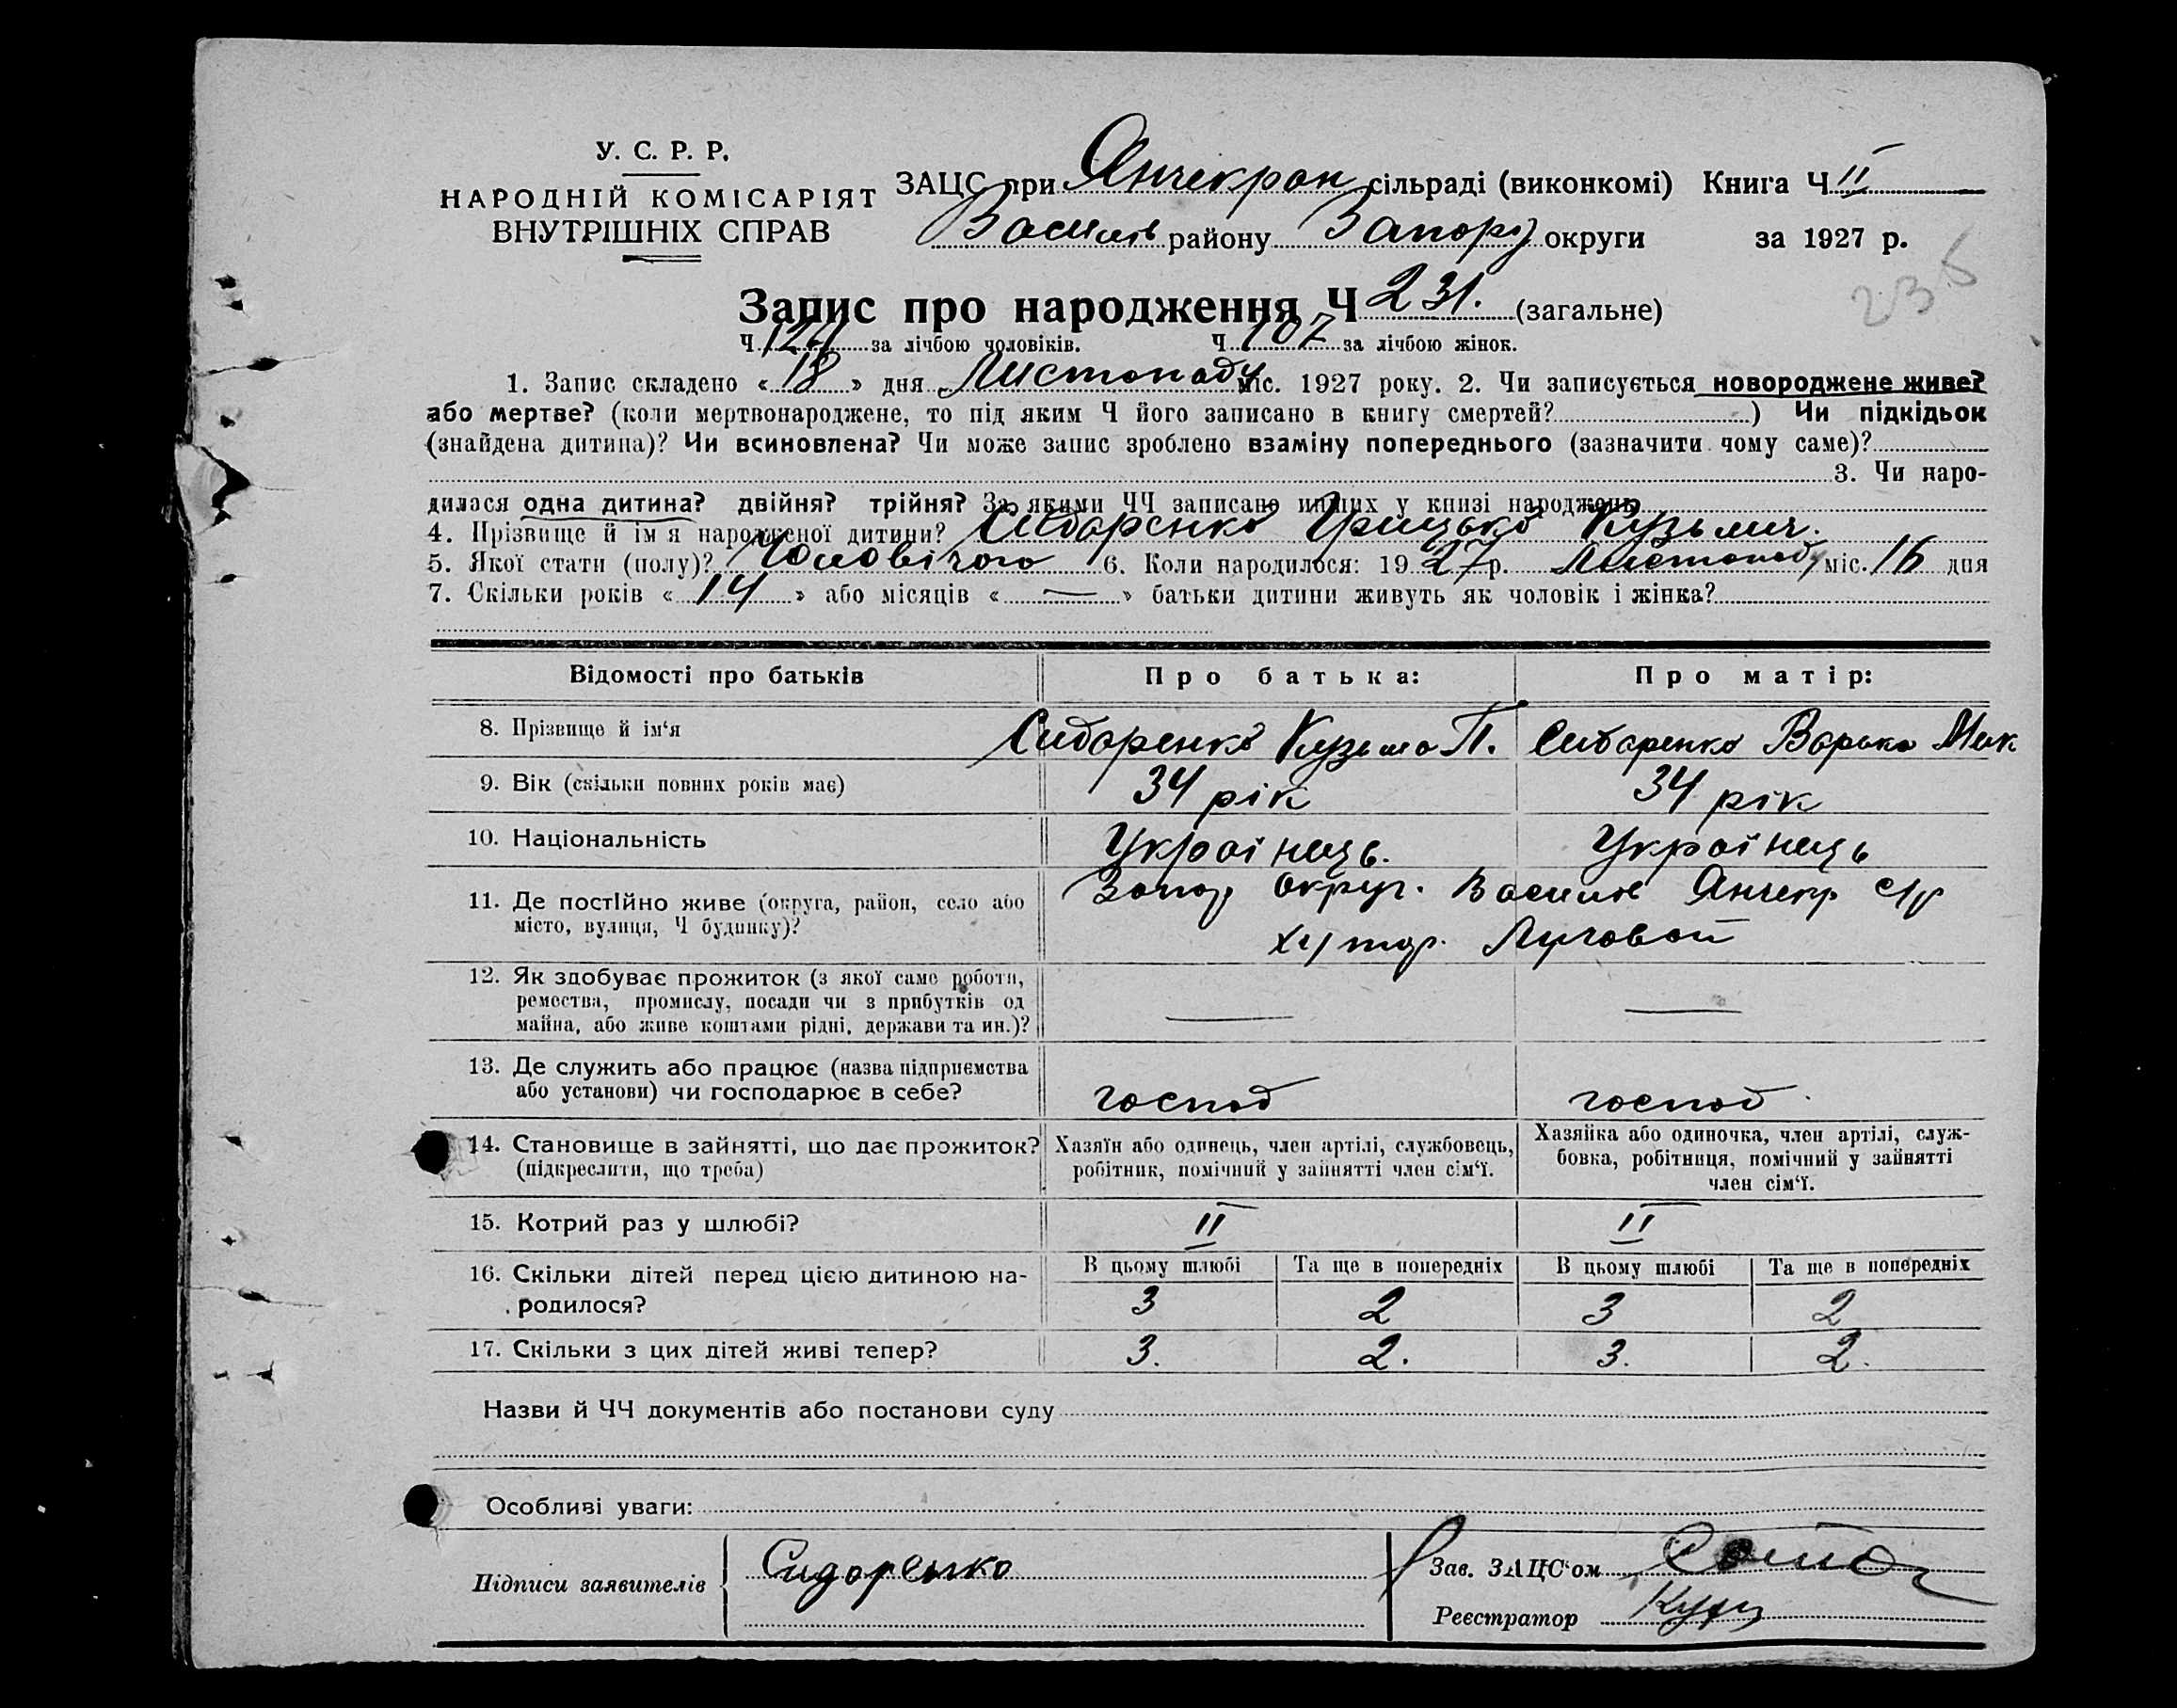 У. С. Р. Р.
НАРОДНІЙ КОМІСАРІЯТ
ВНУТРІШНІХ СПРАВ
ЗАЦС при Янчекрак сільраді (виконкомі) Книга Ч II
Василів району Запоріз округи за 1927 р.
235
Запис про народження Ч 231. (загальне)
Ч 124 за лічбою чоловіків. Ч 107 за лічбою жінок.
1. Запис складено « 18 » дня Листопаду міс. 1927 року. 2. Чи записується новороджене живе?
або мертве? (коли мертвонароджене, то під яким Ч його записано в книгу смертей? ) Чи підкідьок
(знайдена дитина)? Чи всиновлена? Чи може запис зроблено взаміну попереднього (зазначити чому саме)?
3. Чи наро-
дилася одна дитина? двійня? трійня? За якими ЧЧ записано инших у книзі народжень
4. Прізвище й ім'я народженої дитини? Сидоренко Грицько Кузьмич.
5. Якої стати (полу)? Чоловічого 6. Коли народилося: 1927 р. Листопаду міс. 16 дня
7. Скільки років « 14 » або місяців « — » батьки дитини живуть як чоловік і жінка?
Відомості про батьків Про батька: Про матір:
8. Прізвище й ім'я Сидоренко Кузьма П. Сидоренко Варька Мик
9. Вік (скільки повних років має) 34 рік 34 рік
10. Національність Українець. Українець
11. Де постійно живе (округа, район, село або Запор округ. Василів Янчекр с/р
місто, вулиця, Ч будинку)? хутор. Луговой
12. Як здобуває прожиток (з якої саме роботи,
ремества, промислу, посади чи з прибутків од — —
майна, або живе коштами рідні, держави та ин.)?
13. Де служить або працює (назва підприємства
або установи) чи господарює в себе? господ господ
14. Становище в зайнятті, що дає прожиток? Хазяїн або одинець, член артілі, службовець, Хазяйка або одиночка, член артілі, служ-
(підкреслити, що треба) робітник, помічний у зайнятті член сім'ї. бовка, робітниця, помічний у зайнятті
член сім'ї.
15. Котрий раз у шлюбі? II II
16. Скільки дітей перед цією дитиною на- В цьому шлюбі Та ще в попередніх В цьому шлюбі Та ще в попередніх
родилося? 3 2 3 2
17. Скільки з цих дітей живі тепер? 3. 2. 3. 2.
Назви й ЧЧ документів або постанови суду
Особливі уваги:
Підписи заявителів Сидоренко Зав. ЗАЦС'ом
Реєстратор